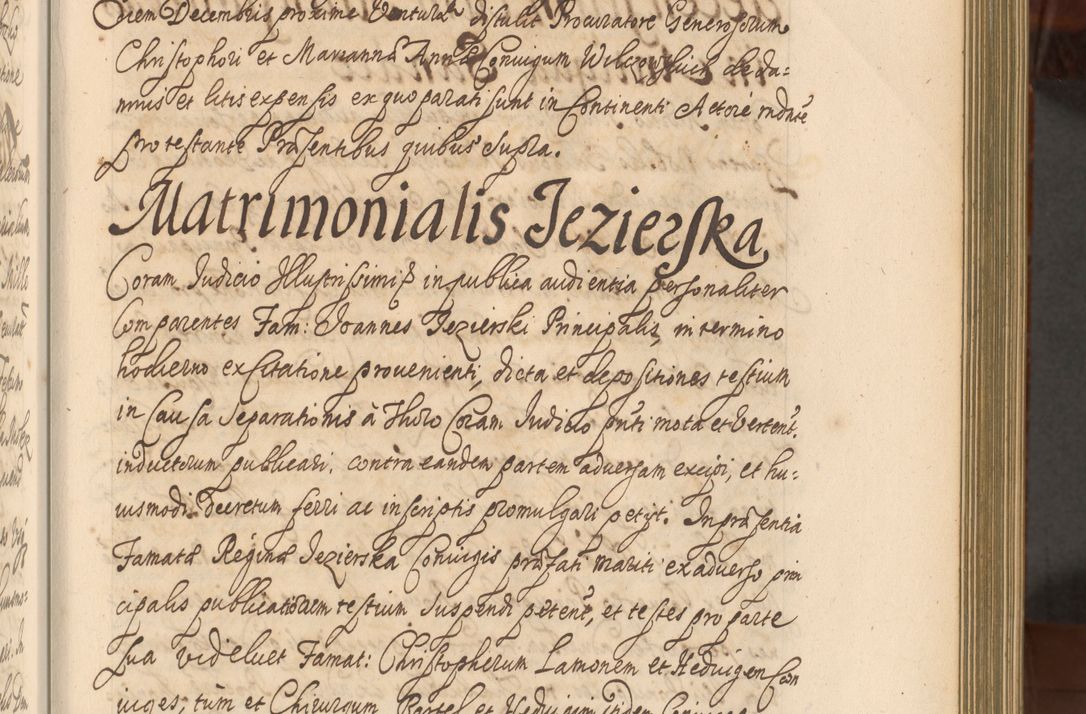 diem Decembris proxime Ventura distulit Procuratore Generosorum
Christophori et Mariannæ Annæ Coniugum Wilczowskich de da=
mnis et litis expensis ex quo parati sunt in Continenti Actore
protestante Præsentibus quibus supra.
Matrimonialis Jezierska
Coram Judicio Illustrissimi in publica audientia personaliter
Comparentes Fam: Joannes Jezierski Principalis, in termino
hodierno ex Citatione prouenienti, dicta et depositiones testium
in Causa Separationis à Thoro Coram Judicio pñti mota et Vertent:
inductorum publicari, contra eandem partem aduersam excipi, et hu=
iusmodi Decretum ferri ac in scriptis promulgari petijt. In præsentia
Famatæ Reginæ Jezierska Coniugis præfati mariti ex aduerso prin
cipalis publicationem testium suspendi petent, et testes pro parte
sua videlicet Famat: Christopherum Lamonem et Heduigen Con
iuges, tum et Chirurgum Bartel et Heduigim itidem Coniuges